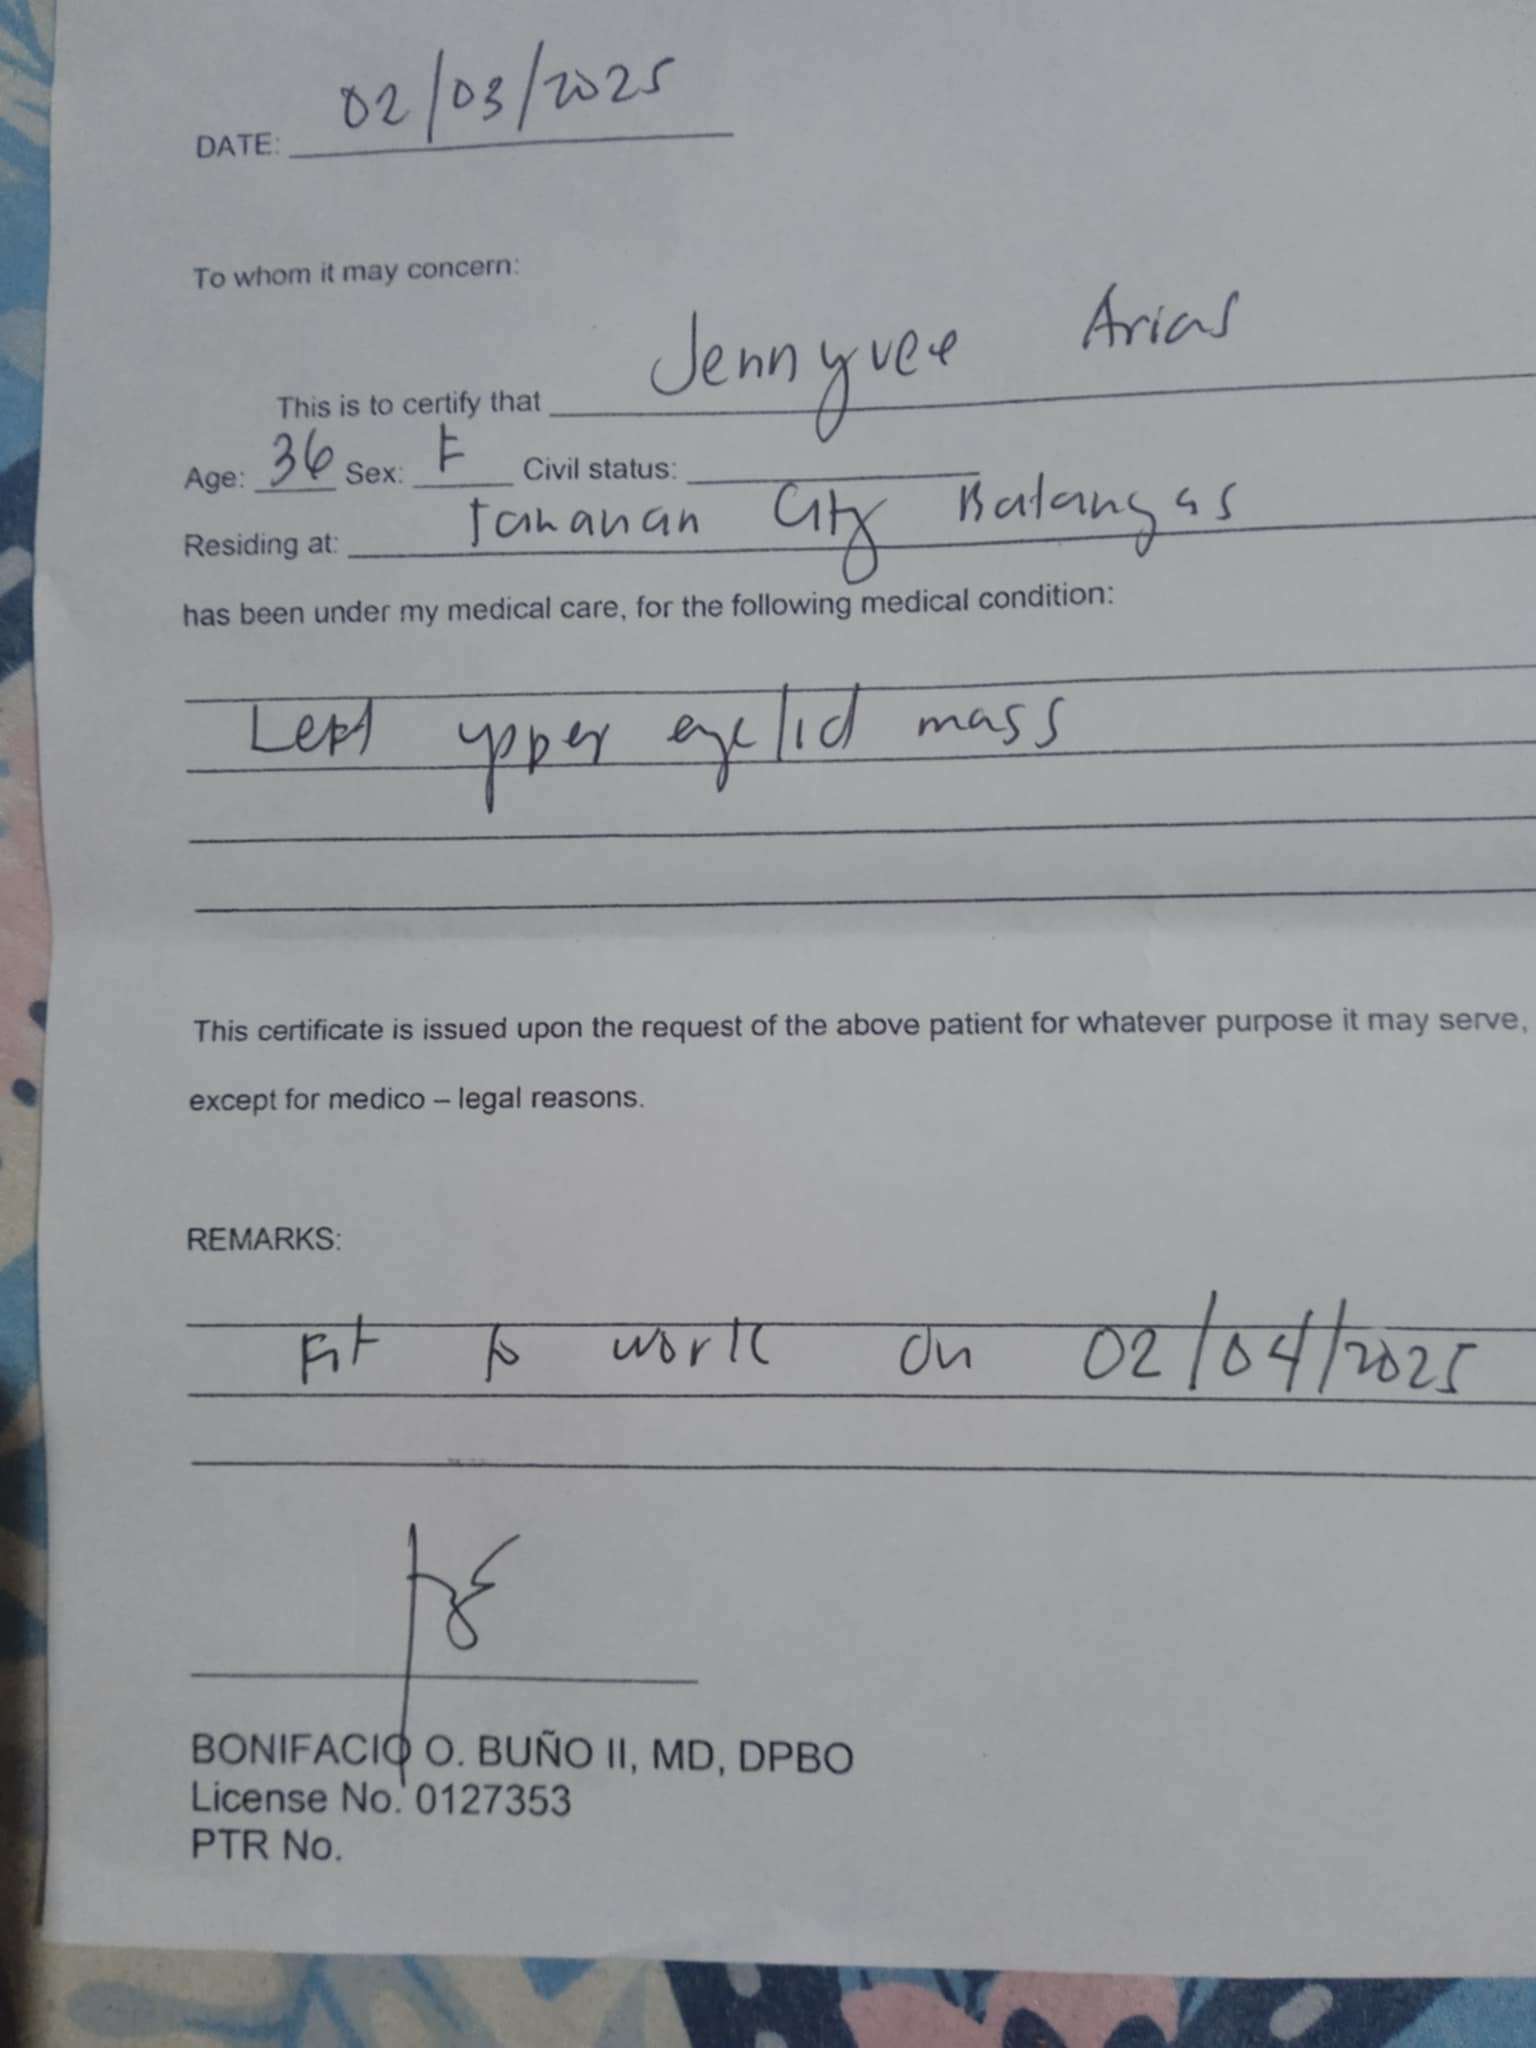 DATE: 02/03/2025
To whom it may concern:
This is to certify that Jennyvee Arias
Age: 36 Sex: F Civil status:
Residing at: Tananan City Batangas
has been under my medical care, for the following medical condition:
Left upper eyelid mass
This certificate is issued upon the request of the above patient for whatever purpose it may serve,
except for medico – legal reasons.
REMARKS:
Fit to work on 02/04/2025
BONIFACIO O. BUÑO II, MD, DPBO
License No. 0127353
PTR No.